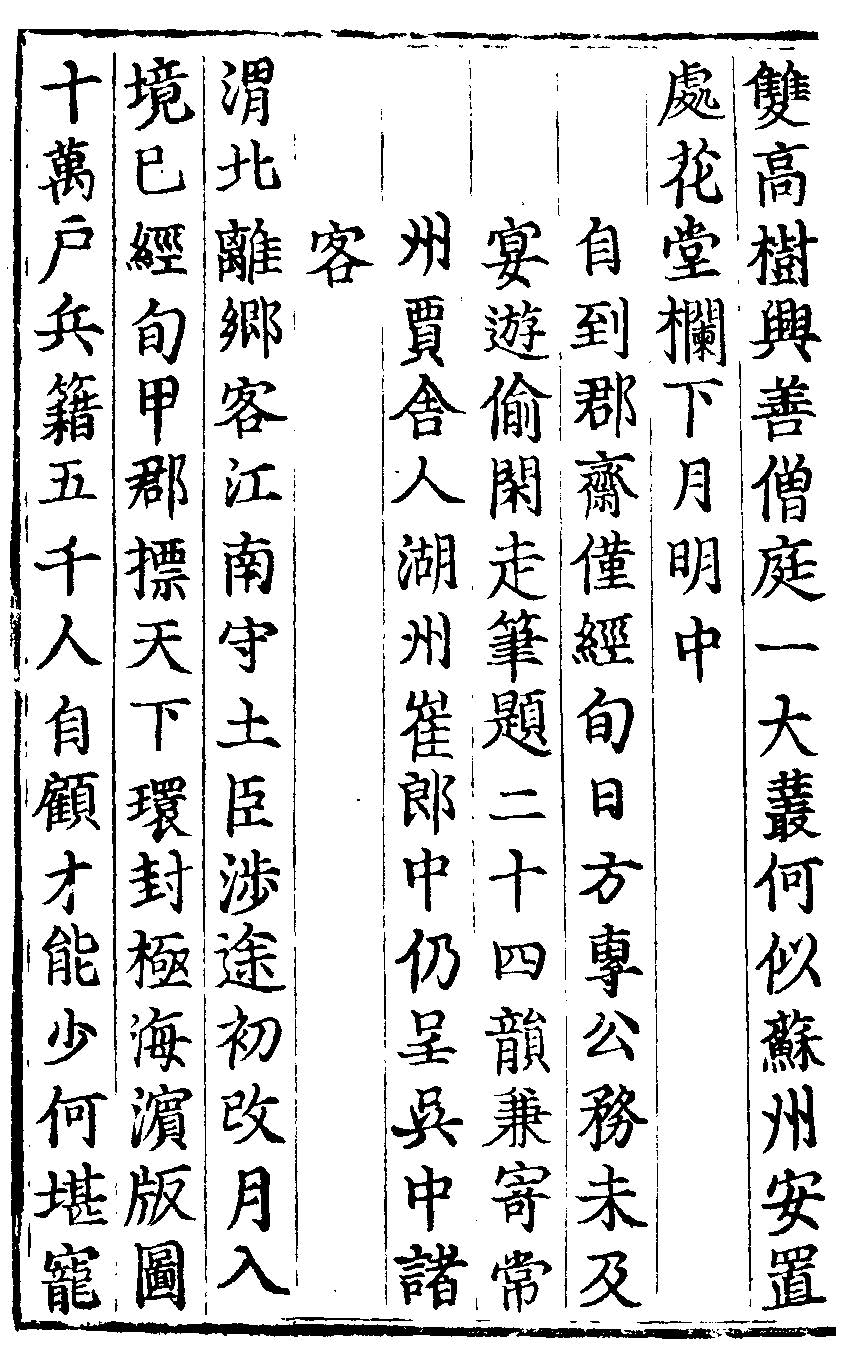 雙高樹興善僧庭一大叢何似蘇州安置
處花堂欄下月明中
自到郡齋僅經旬日方專公務未及
宴遊偷閑走筆題二十四韻兼寄常
州賈舎人湖州崔郎中仍呈吳中諸
客
渭北離鄉客江南守土臣涉途初改月入
境已經旬甲郡摽天下環封極海濵版圖
十萬户兵籍五千人自顧才能少何堪寵